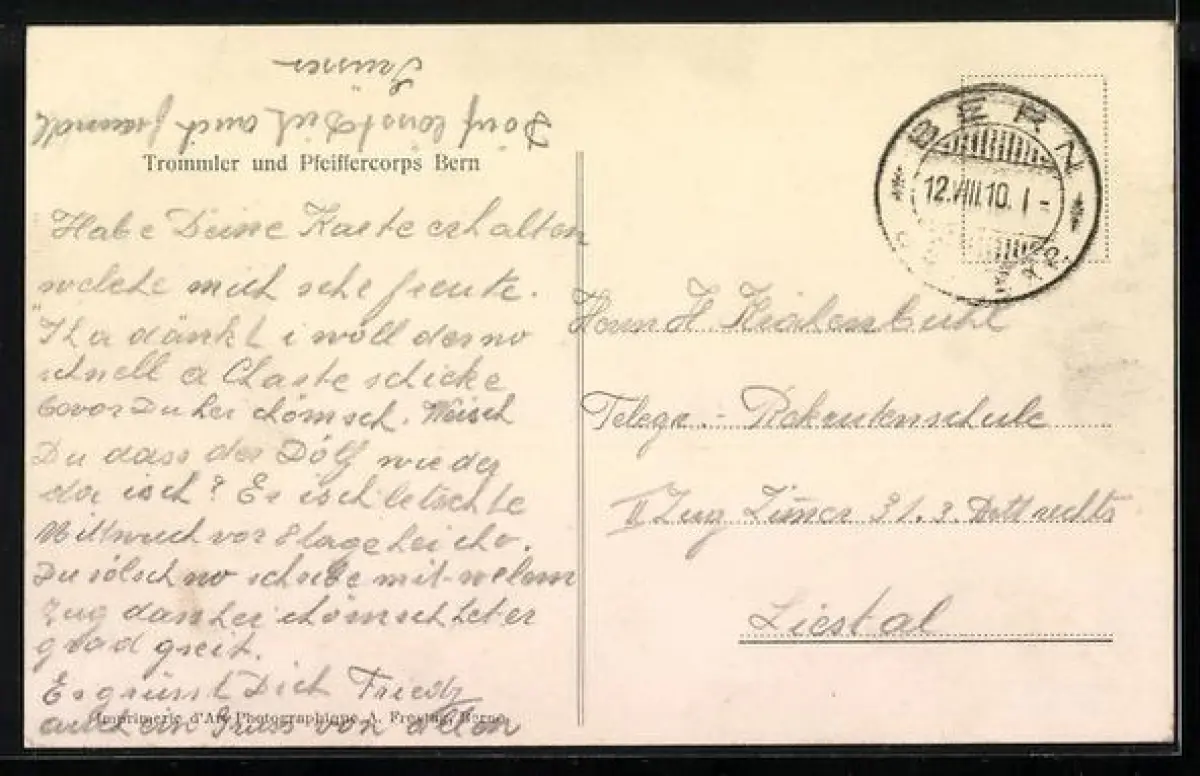 Dölf lönst Dich auch
Trommler und Pfeiffercorps Bern
Habe Deine Karte erhalten
welche mich sehr freute.
I ha dänkt i wöll der no
schnell a Charte schicke
bovor Du hei chömsch. Weisch
Du dass der Dölf wieder
da isch? Er isch letschte
Mittwuch vor 8 tage hei cho.
Du sölsch no schribe mit welem
Zug dass hei chömsch het er
grad greit.
Es grüsst Dich Friedy
auch ein Gruss von allen
Imprimerie d'Art Photographique A. Freytag, Berne
BERN
12.VIII.10. 1-
Herrn H.
Telegr.- Rekrutenschule
II Zug Zimer 31. 3. Bett rechts
Liestal